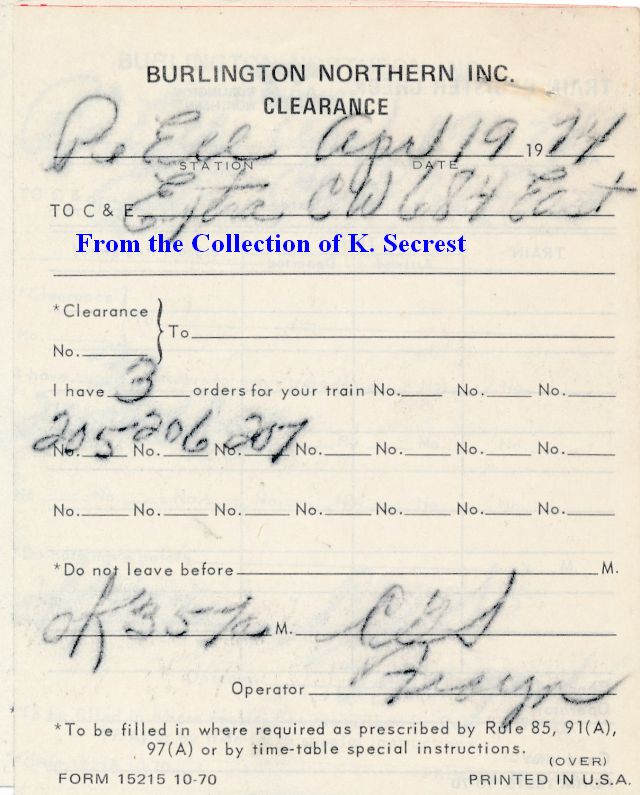 BURLINGTON NORTHERN INC.
CLEARANCE
Pe Ell April 19 1974
STATION DATE
TO C & E Extra CW 684 East
From the Collection of K. Secrest
*Clearance
No. } To
I have 3 orders for your train No. No. No.
No. 205 No. 206 No. 207 No. No. No. No.
No. No. No. No. No. No. No.
*Do not leave before M.
ok 357 a M. CGS
Operator
*To be filled in where required as prescribed by Rule 85, 91(A),
97(A) or by time-table special instructions.
(OVER)
FORM 15215 10-70 PRINTED IN U.S.A.